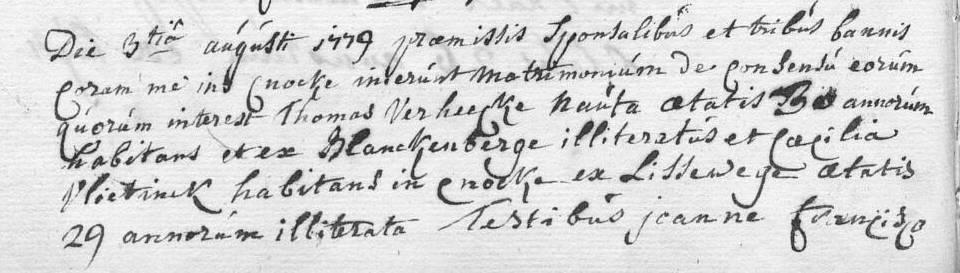 Die 3tiâ augusti 1779 præmissis sponsalibus et tribus bannis
coram me in Cnocke inierunt matrimonium de consensu eorum
quorum interest Thomas Verheecke nauta ætatis annorum
habitans et ex Blanckenberge illiteratus et Cæcilia
Vlietinck habitans in Cnocke ex Lissewege ætatis
29 annorum illiterata Testibus joanne francisco